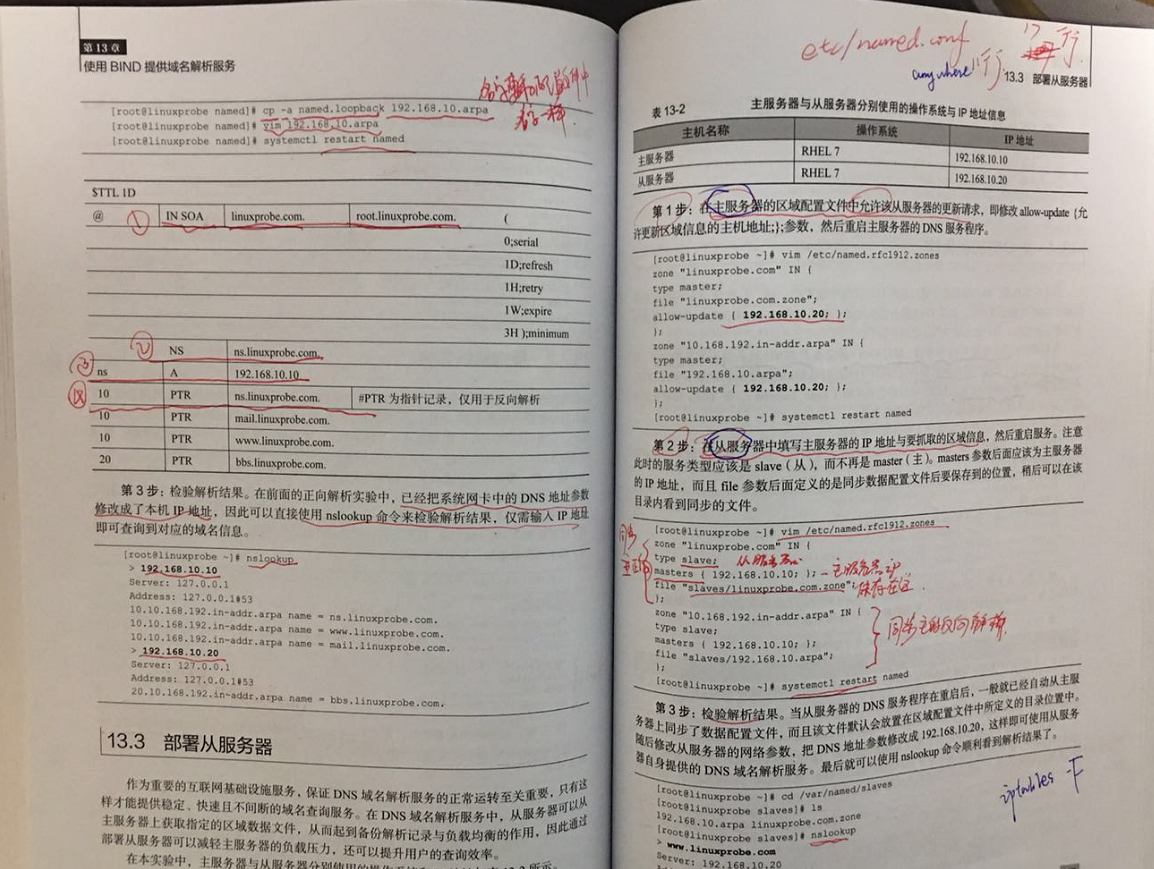 第13章
使用 BIND 提供域名解析服务
[root@linuxprobe named]# cp -a named.loopback 192.168.10.arpa
[root@linuxprobe named]# vim 192.168.10.arpa
[root@linuxprobe named]# systemctl restart named
$TTL 1D
@ ① IN SOA linuxprobe.com. root.linuxprobe.com. (
0;serial
1D;refresh
1H;retry
1W;expire
3H );minimum
② NS ns.linuxprobe.com.
③ ns A 192.168.10.10
④ 10 PTR ns.linuxprobe.com. #PTR 为指针记录，仅用于反向解析
10 PTR mail.linuxprobe.com.
10 PTR www.linuxprobe.com.
20 PTR bbs.linuxprobe.com.
第 3 步：检验解析结果。在前面的正向解析实验中，已经把系统网卡中的 DNS 地址参数
修改成了本机 IP 地址，因此可以直接使用 nslookup 命令来检验解析结果，仅需输入 IP 地址
即可查询到对应的域名信息。
[root@linuxprobe ~]# nslookup
> 192.168.10.10
Server: 127.0.0.1
Address: 127.0.0.1#53
10.10.168.192.in-addr.arpa name = ns.linuxprobe.com.
10.10.168.192.in-addr.arpa name = www.linuxprobe.com.
10.10.168.192.in-addr.arpa name = mail.linuxprobe.com.
> 192.168.10.20
Server: 127.0.0.1
Address: 127.0.0.1#53
20.10.168.192.in-addr.arpa name = bbs.linuxprobe.com.
13.3 部署从服务器
作为重要的互联网基础设施服务，保证 DNS 域名解析服务的正常运转至关重要，只有这
样才能提供稳定、快速且不间断的域名查询服务。在 DNS 域名解析服务中，从服务器可以从
主服务器上获取指定的区域数据文件，从而起到备份解析记录与负载均衡的作用，因此通过
部署从服务器可以减轻主服务器的负载压力，还可以提升用户的查询效率。
在本实验中，主服务器与从服务器分别使用的操作系统
etc/named.conf
anywhere 11行 17行
13.3 部署从服务器
表 13-2 主服务器与从服务器分别使用的操作系统与 IP 地址信息
主机名称 操作系统 IP 地址
主服务器 RHEL 7 192.168.10.10
从服务器 RHEL 7 192.168.10.20
第 1 步：在主服务器的区域配置文件中允许该从服务器的更新请求，即修改 allow-update {允
许更新区域信息的主机地址;};参数，然后重启主服务器的 DNS 服务程序。
[root@linuxprobe ~]# vim /etc/named.rfc1912.zones
zone "linuxprobe.com" IN {
type master;
file "linuxprobe.com.zone";
allow-update { 192.168.10.20; };
};
zone "10.168.192.in-addr.arpa" IN {
type master;
file "192.168.10.arpa";
allow-update { 192.168.10.20; };
};
[root@linuxprobe ~]# systemctl restart named
第 2 步：在从服务器中填写主服务器的 IP 地址与要抓取的区域信息，然后重启服务。注意
此时的服务类型应该是 slave（从），而不再是 master（主）。masters 参数后面应该为主服务器
的 IP 地址，而且 file 参数后面定义的是同步数据配置文件后要保存到的位置，稍后可以在该
目录内看到同步的文件。
[root@linuxprobe ~]# vim /etc/named.rfc1912.zones
zone "linuxprobe.com" IN {
type slave; 从服务器
masters { 192.168.10.10; }; 主服务器ip
file "slaves/linuxprobe.com.zone"; 保存在这
};
zone "10.168.192.in-addr.arpa" IN {
type slave;
masters { 192.168.10.10; };
file "slaves/192.168.10.arpa";
};
[root@linuxprobe ~]# systemctl restart named
第 3 步：检验解析结果。当从服务器的 DNS 服务程序在重启后，一般就已经自动从主服
务器上同步了数据配置文件，而且该文件默认会放置在区域配置文件中所定义的目录位置中。
随后修改从服务器的网络参数，把 DNS 地址参数修改成 192.168.10.20，这样即可使用从服务
器自身提供的 DNS 域名解析服务。最后就可以使用 nslookup 命令顺利看到解析结果了。
[root@linuxprobe ~]# cd /var/named/slaves
[root@linuxprobe slaves]# ls
192.168.10.arpa linuxprobe.com.zone
[root@linuxprobe slaves]# nslookup
> www.linuxprobe.com
Server: 192.168.10.20
iptables -F